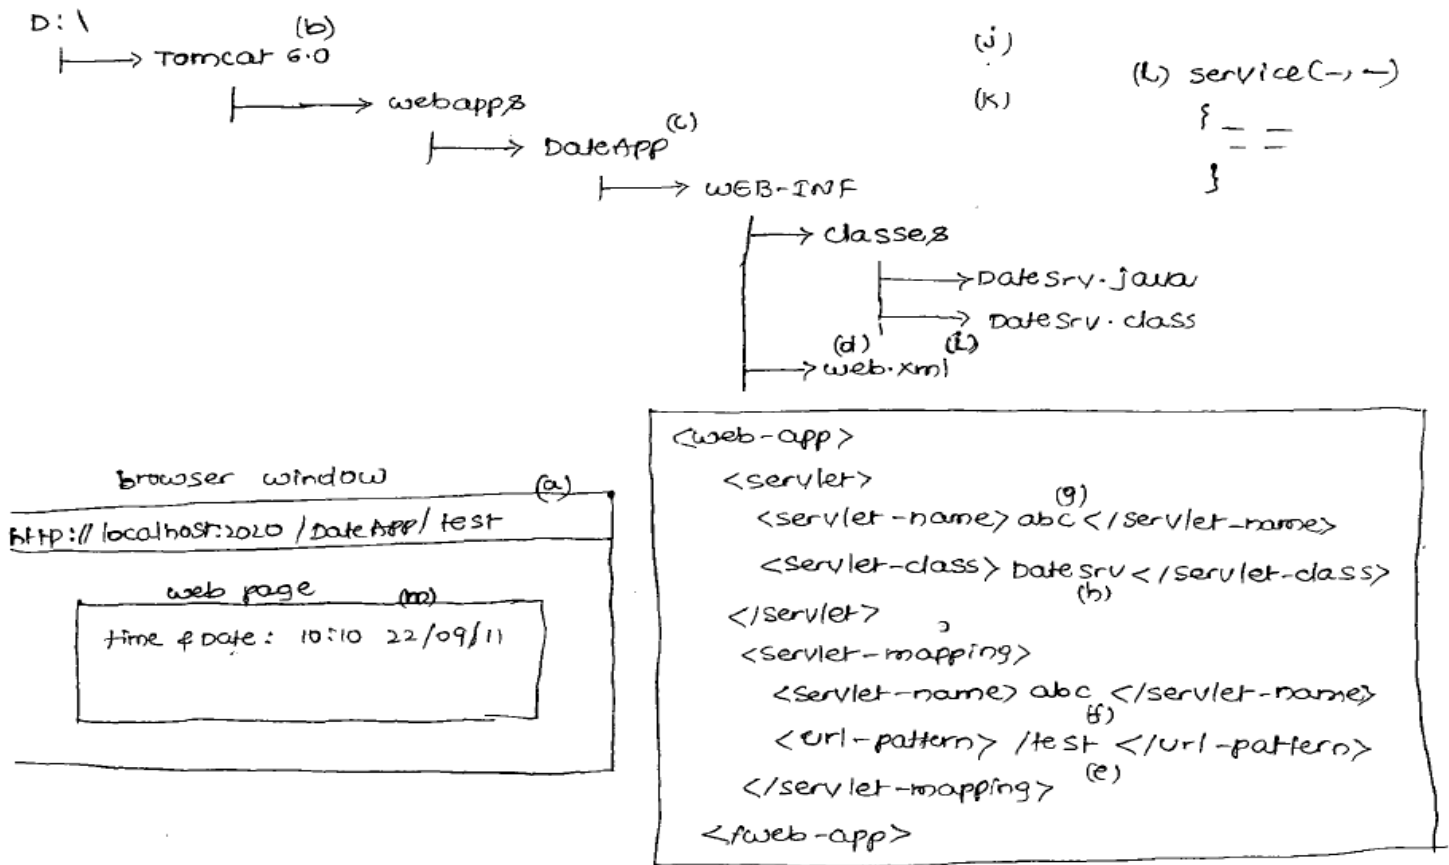 D:\
(b)
Tomcat 6.0
webapps
(c)
DateApp
WEB-INF
classes
DateSrv.java
DateSrv.class
(d) (i)
web.xml
(j)
(k)
(l) service(-, -)
{
}
browser window
(a)
http://localhost:2020/DateApp/test
web page (m)
time & Date: 10:10 22/09/11
<web-app>
<servlet>
(g)
<servlet-name> abc </servlet-name>
<servlet-class> DateSrv </servlet-class>
(h)
</servlet>
<servlet-mapping>
<servlet-name> abc </servlet-name>
(f)
<url-pattern> /test </url-pattern>
(e)
</servlet-mapping>
</web-app>